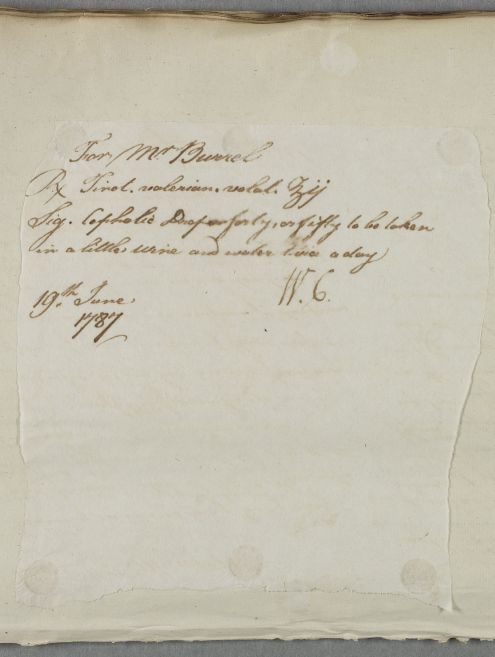 For Mr Burrel
Rx Tinct. valerian. volat. ℥ij
Sig. Cephalic Drops forty, or fifty to be taken
in a little wine and water twice a day
W. C.
19th June
1787